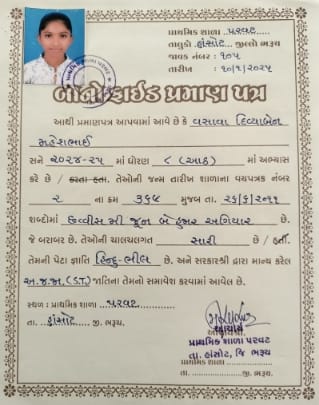 પ્રાથમિક શાળા પરવટ
તાલુકો હાંસોટ જીલ્લો ભરૂચ
જાવક નંબર : ૧૦૫
તારીખ : ૧૦/૧/૨૦૨૫
બોનોફાઈડ પ્રમાણ પત્ર
આથી પ્રમાણપત્ર આપવામાં આવે છે કે વસાવા દિવ્યાબેન
મહેશભાઈ
સને ૨૦૨૪-૨૫ માં ધોરણ ૮ (આઠ) માં અભ્યાસ
કરે છે / કરતા હતા. તેઓની જન્મ તારીખ શાળાના વયપત્રક નંબર
૨ ના ક્રમ ૩૬૪ મુજબ તા. ૨૬/૬/૨૦૧૧
શબ્દોમાં છવ્વીસમી જૂન બે હજાર અગિયાર છે.
જે બરાબર છે. તેઓની ચાલચલગત સારી છે / હતી.
તેમની પેટા જ્ઞાતિ હિન્દુ-ભીલ છે. અને સરકારશ્રી દ્વારા માન્ય કરેલ
અ.જ.જા. (S.T.) જાતિના તેમનો સમાવેશ કરવામાં આવેલ છે.
સ્થળ : પ્રાથમિક શાળા પરવટ
તા. હાંસોટ જી. ભરૂચ.
આચાર્ય
પ્રાથમિક શાળા પરવટ
તા. હાંસોટ, જિ ભરૂચ